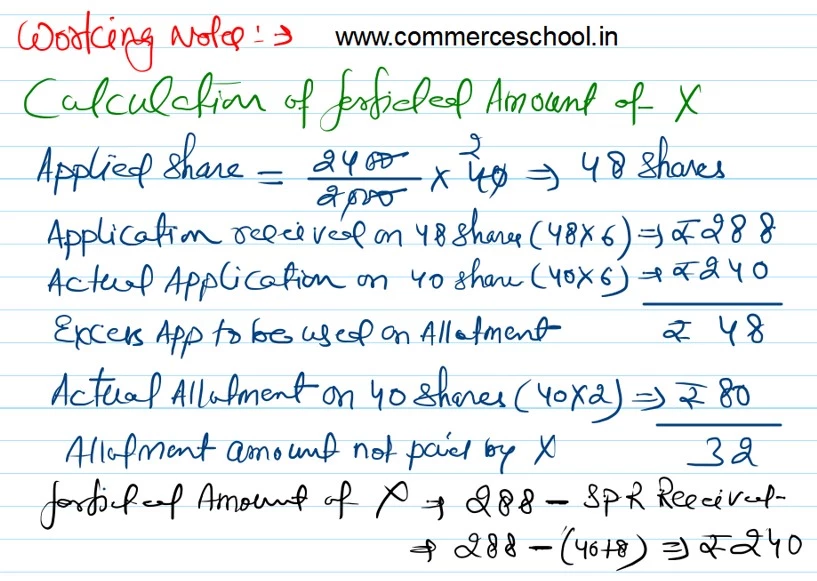 Working Note :→ www.commerceschool.in
Calculation of forficted Amount of X
Applied Share = 2400/2000 × 40 2 ⇒ 48 Shares
Application received on 48 Shares (48×6) ⇒ ₹288
Actual Application on 40 share (40×6) ⇒ ₹240
Excess App to be used on Allotment ₹ 48
Actual Allotment on 40 Shares (40×2) ⇒ ₹80
Allotment amount not paid by X 32
forficted Amount of X → 288 – SPR Received
⇒ 288 – (40+8) ⇒ ₹240